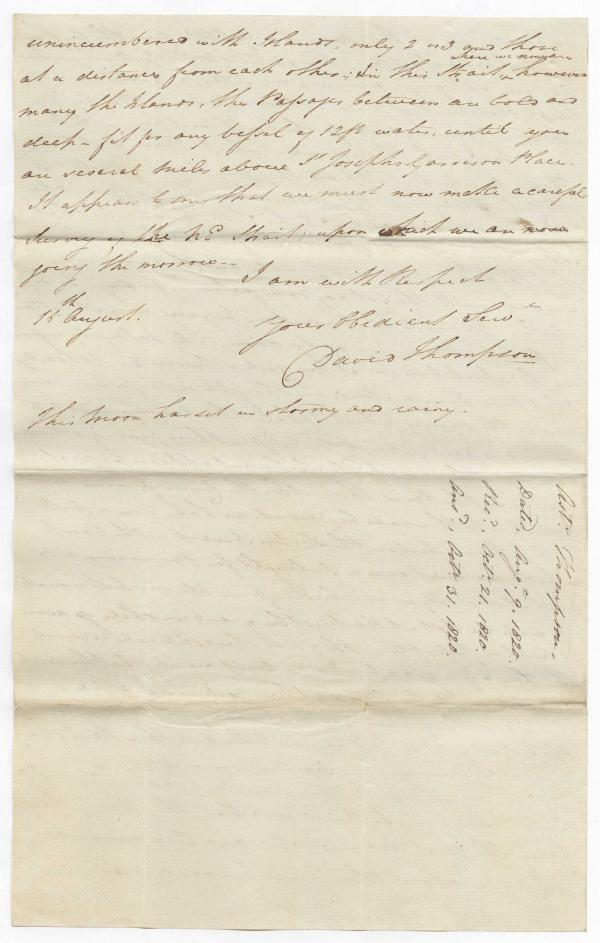 unincumbered with Islands, only 2 or 3 and those
at a distance from each other; In this Strait, where we now are however
many the Islands, the Passages between are bold and
deep – fit for any vessel of 12ft water, until you
are several miles above St Josephs Garrison Place.
It appears to me that we must now make a careful
Survey of the NE Strait: upon which we are now
going the morrow –
I am with Respect
15th August.
Your Obedient Servt
David Thompson
This Moon has set in stormy and rainy.
Astr Thompson.
Dated, Augt 9. 1820.
Recd, Octr 21. 1820.
Ansd, Octr 31. 1820.